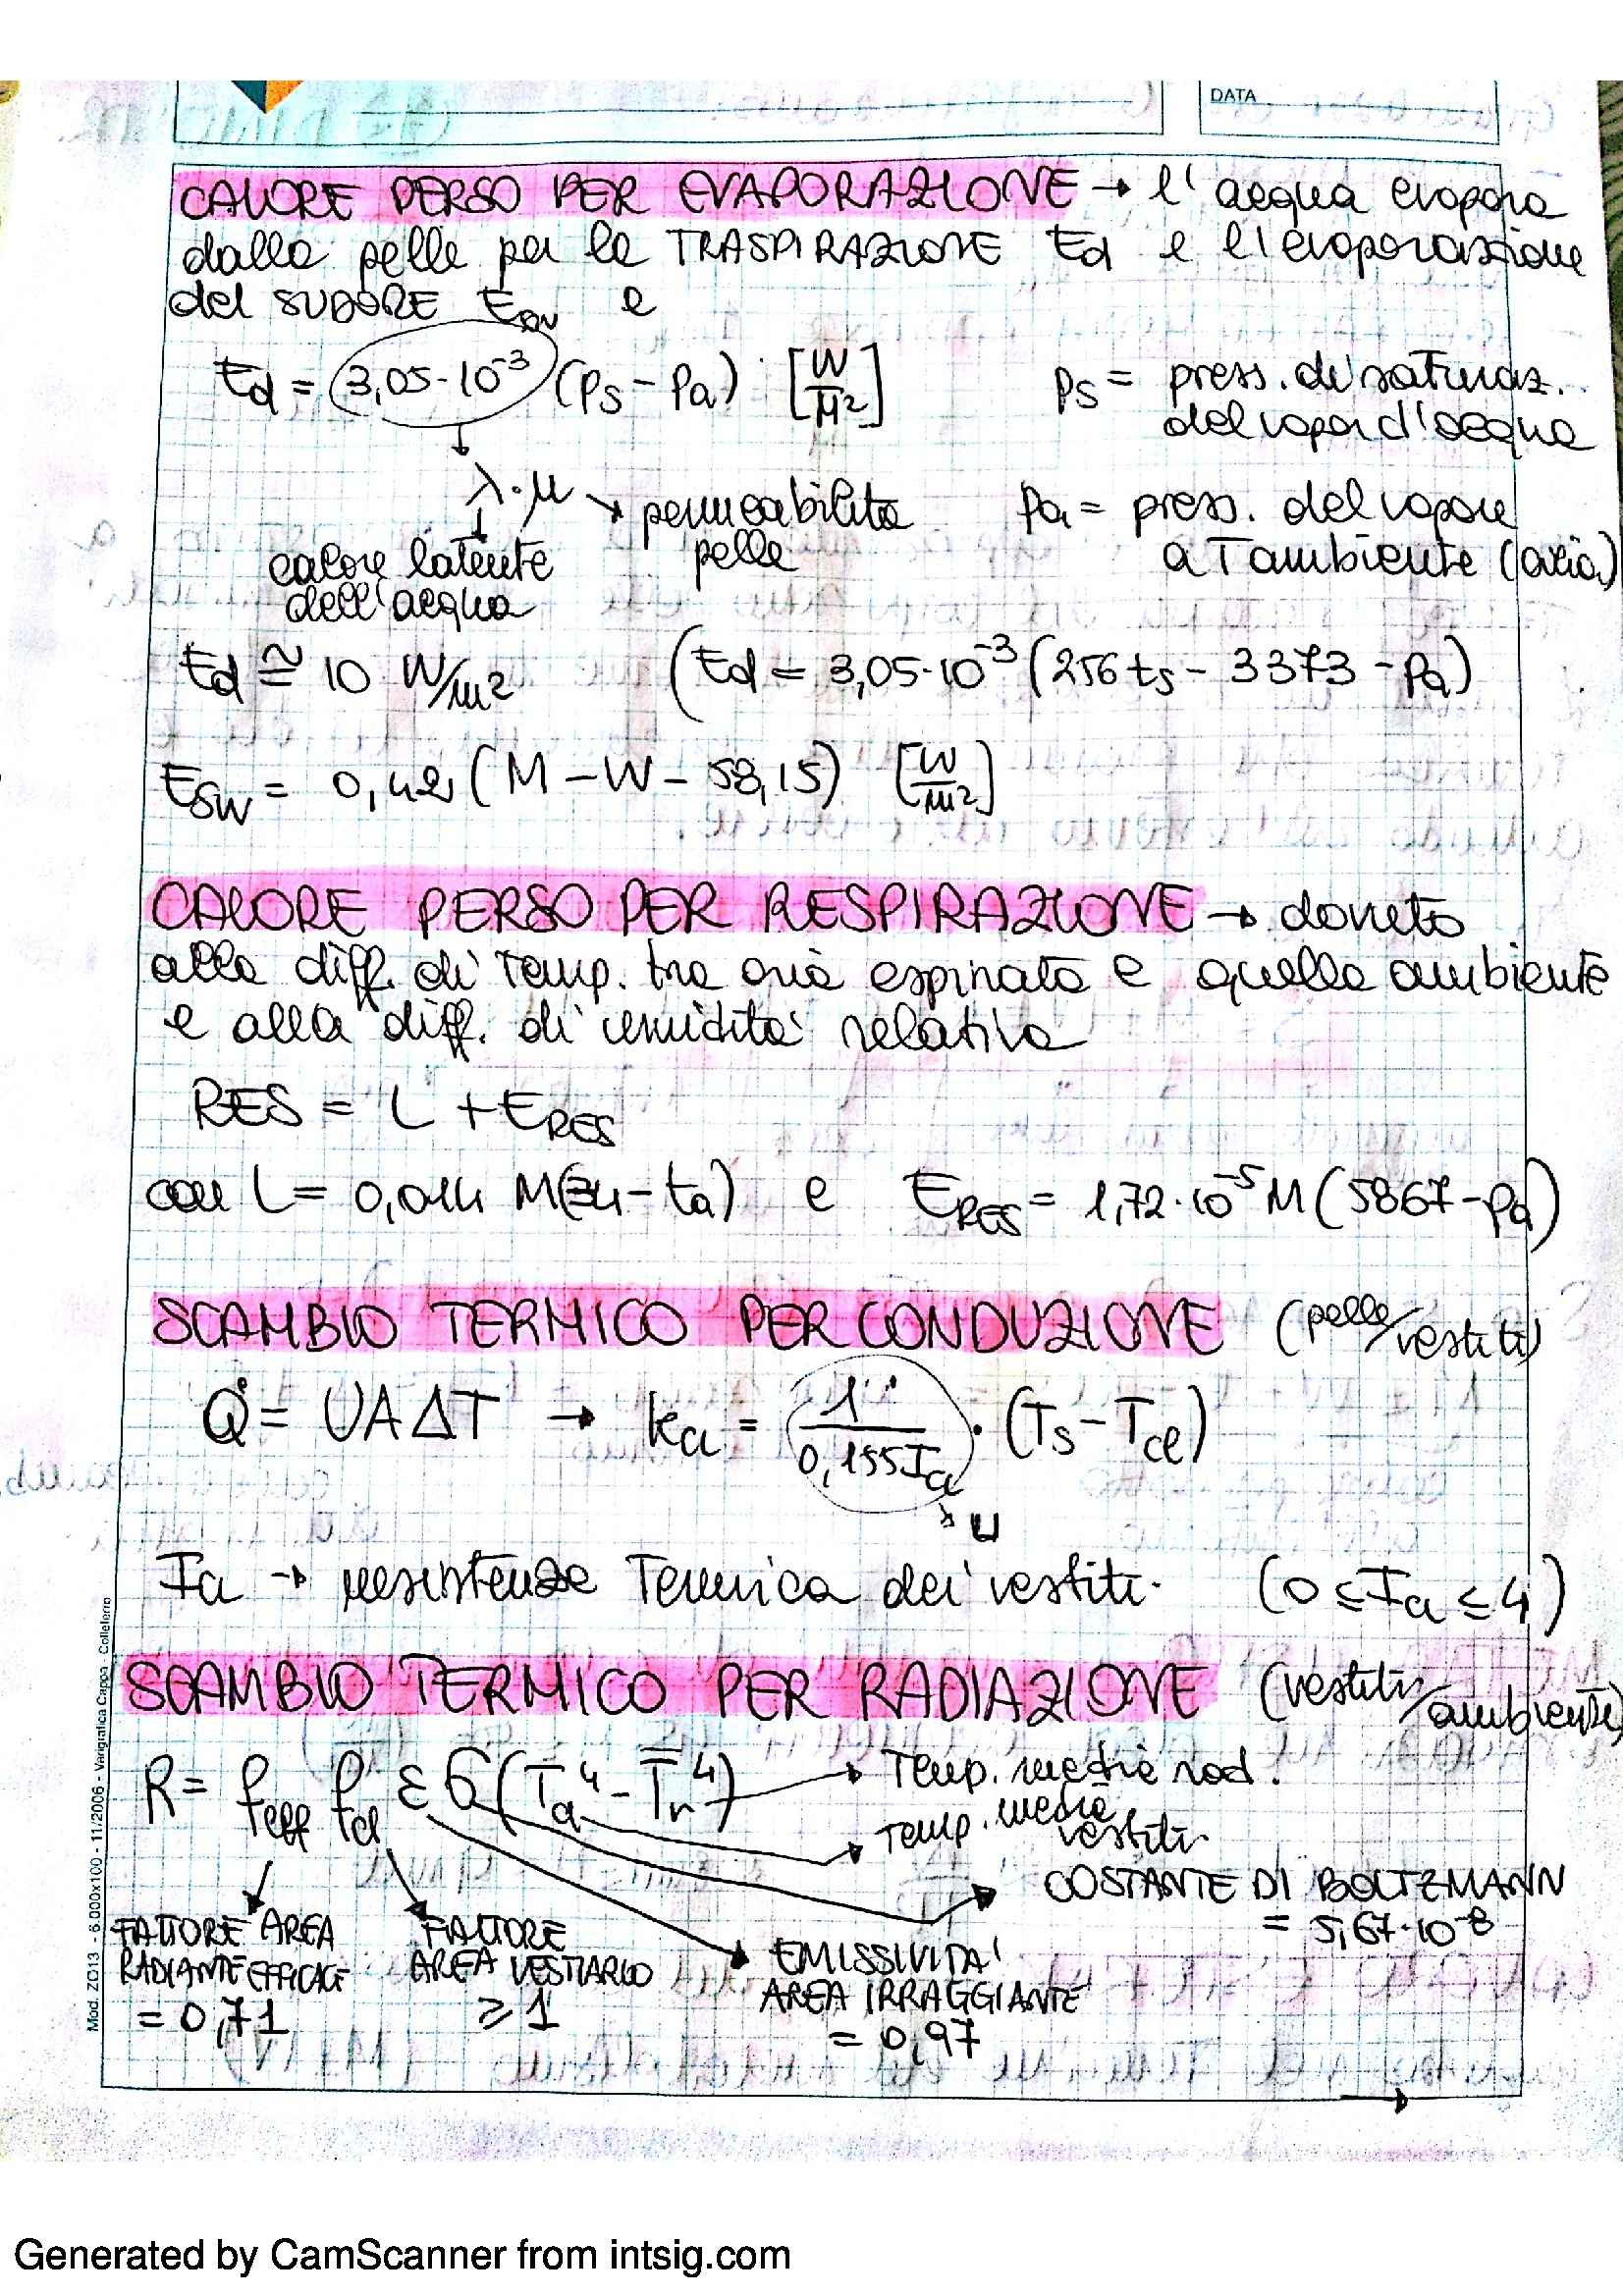 DATA
CALORE PERSO PER EVAPORAZIONE → l'acqua evapora
dalla pelle per la TRASPIRAZIONE Ed e l'evaporazione
del SUDORE Esw e
Ed = 3,05·10⁻³ (ps - pa) [W/m²] ps = press. di saturaz.
del vapor d'acqua
λ·μ → permeabilità pa = press. del vapore
pelle a T ambiente (aria)
calore latente
dell'acqua
Ed ≅ 10 W/m² (Ed = 3,05·10⁻³ (256 ts - 3373 - pa)
ESW = 0,42 (M - W - 58,15) [W/m²]
CALORE PERSO PER RESPIRAZIONE → dovuto
alla diff. di temp. tra aria espirata e quella ambiente
e alla diff. di umidità relativa
RES = L + ERES
con L = 0,0014 M(34 - ta) e ERES = 1,72·10⁻⁵ M (5867 - pa)
SCAMBIO TERMICO PER CONDUZIONE (pelle/vestiti)
Q̇ = UAΔT → kcl = 1/(0,155 Icl) · (Ts - Tcl)
→ U
Icl → resistenza Termica dei vestiti. (0 ≤ Icl ≤ 4)
SCAMBIO TERMICO PER RADIAZIONE (vestiti/ambiente)
R = feff fcl ε σ (Tcl⁴ - T̄r⁴) → Temp. media rad.
Temp. media
vestiti
COSTANTE DI BOLTZMANN
= 5,67·10⁻⁸
FATTORE AREA
RADIANTE EFFICACE
= 0,71
FATTORE
AREA VESTIARIO
≥ 1
EMISSIVITA'
AREA IRRAGGIANTE
= 0,97
→
Mod. ZZO13 - 6.000x100 - 11/2006 - Varigrafica Cappa - Colleferro
Generated by CamScanner from intsig.com